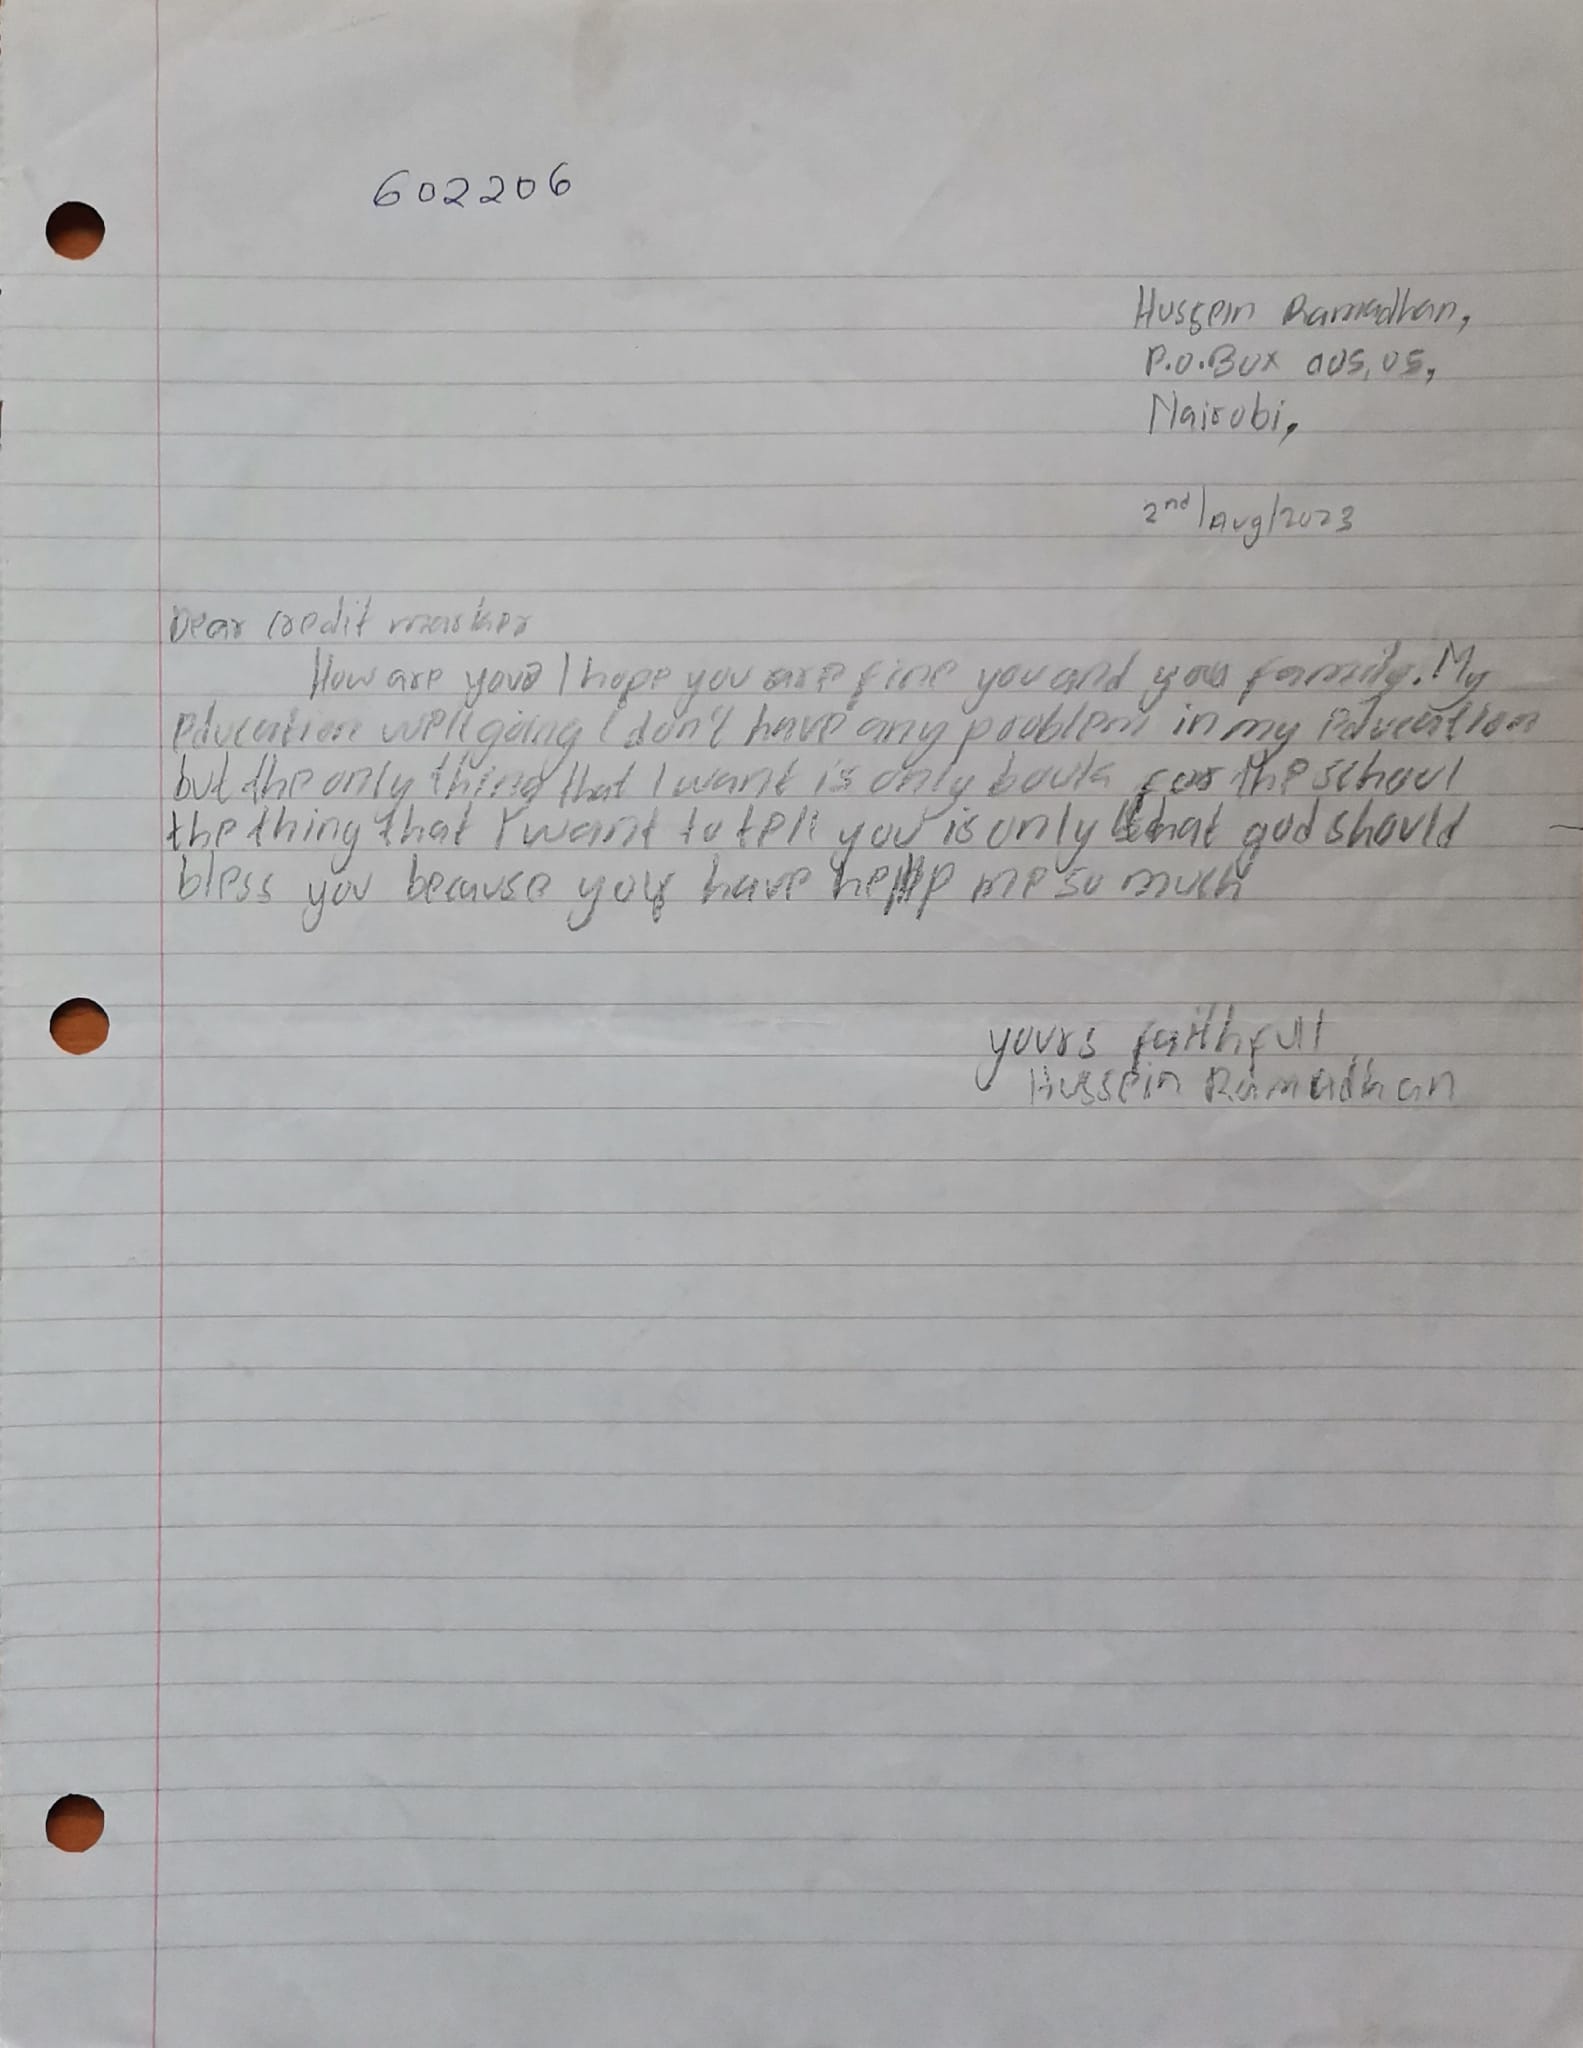 602206
Hussein Ramadhan,
P.O.Box 005,05,
Nairobi,
2nd/Aug/2023
Dear credit marker
How are you? I hope you are fine you and you family. My
education well going I don't have any problem in my education
but the only thing that I want is only book for the school
the thing that I want to tell you is only that god should
bless you because you have help me so much
yours faithfull
Hussein Ramadhan